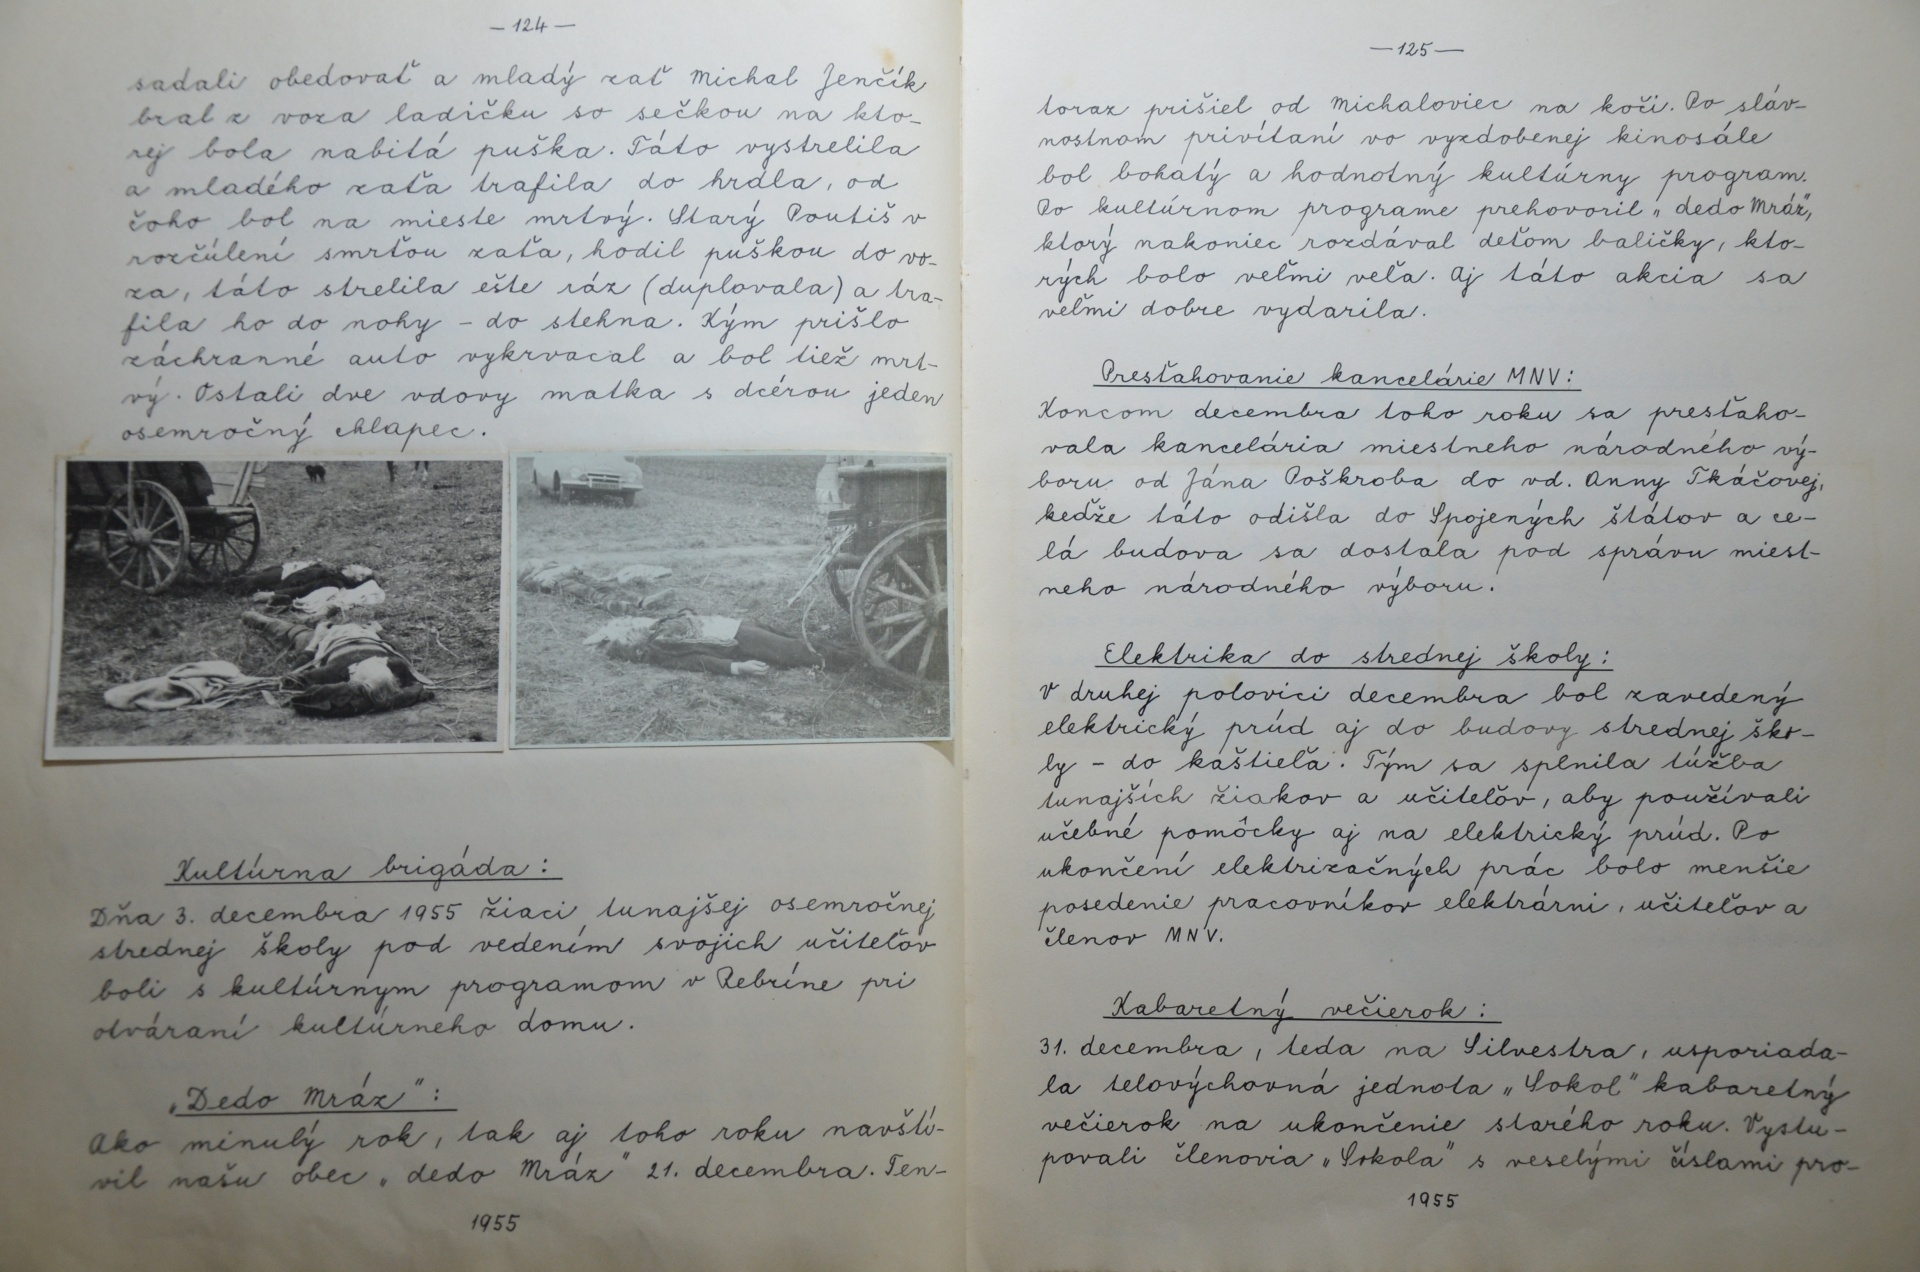 — 124 —
sadali obedovať a mladý zať Michal Jenčík
bral z voza ladičku so sečkou na kto-
rej bola nabitá puška. Táto vystrelila
a mladého zaťa trafila do hrdla, od
čoho bol na mieste mrtvý. Starý Poutiš v
rozčúlení smrťou zaťa, hodil puškou do vo-
za, táto strelila ešte ráz (duplovala) a tra-
fila ho do nohy - do stehna. Kým prišlo
záchranné auto vykrvacal a bol tiež mrt-
vý. Ostali dve vdovy matka s dcérou jeden
osemročný chlapec.
Kultúrna brigáda :
Dňa 3. decembra 1955 žiaci tunajšej osemročnej
strednej školy pod vedením svojich učiteľov
boli s kultúrnym programom v Rebríne pri
otváraní kultúrneho domu.
„Dedo Mráz“ :
Ako minulý rok, tak aj toho roku navští-
vil našu obec „dedo Mráz“ 21. decembra. Ten-
1955
— 125 —
toraz prišiel od Michaloviec na koči. Po sláv-
nostnom privítaní vo vyzdobenej kinosále
bol bohatý a hodnotný kultúrny program.
Po kultúrnom programe prehovoril „dedo Mráz“,
ktorý nakoniec rozdával deťom baličky, kto-
rých bolo veľmi veľa. Aj táto akcia sa
veľmi dobre vydarila.
Presťahovanie kancelárie MNV :
Koncom decembra toho roku sa presťaho-
vala kancelária miestneho národného vý-
boru od Jána Poškroba do vd. Anny Tkáčovej,
kedže táto odišla do Spojených štátov a ce-
lá budova sa dostala pod správu miest-
neho národného výboru.
Elektrika do strednej školy :
V druhej polovici decembra bol zavedený
elektrický prúd aj do budovy strednej ško-
ly - do kaštieľa. Tým sa splnila túžba
tunajších žiakov a učiteľov, aby používali
učebné pomôcky aj na elektrický prúd. Po
ukončení elektrizačných prác bolo menšie
posedenie pracovníkov elektrárni, učiteľov a
členov MNV.
Kabaretný večierok :
31. decembra, teda na Silvestra, usporiada-
la telovýchovná jednota „Sokol“ kabaretný
večierok na ukončenie starého roku. Vystu-
povali členovia „Sokola“ s veselými číslami pro-
1955